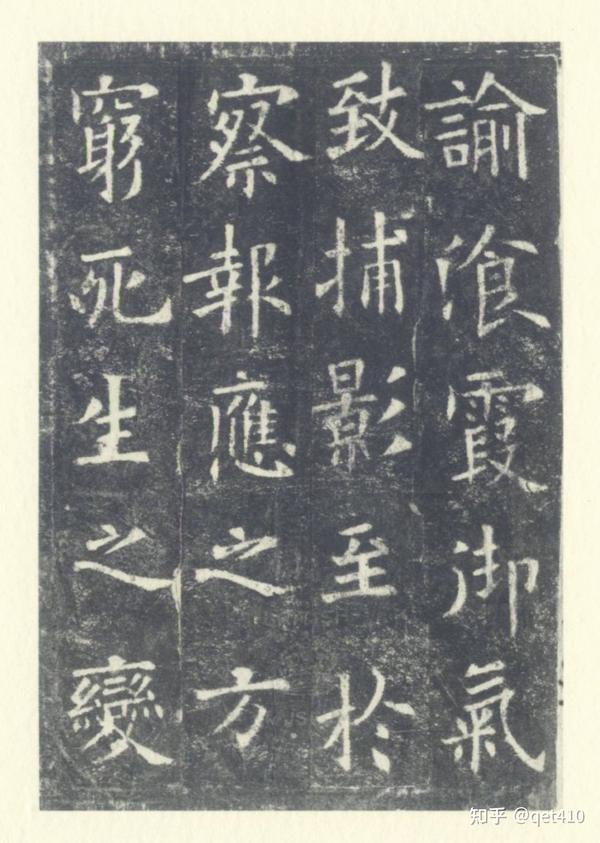 諭飡霞御氣
致捕影至於
察報應之方
窮死生之變
知乎 @qet410